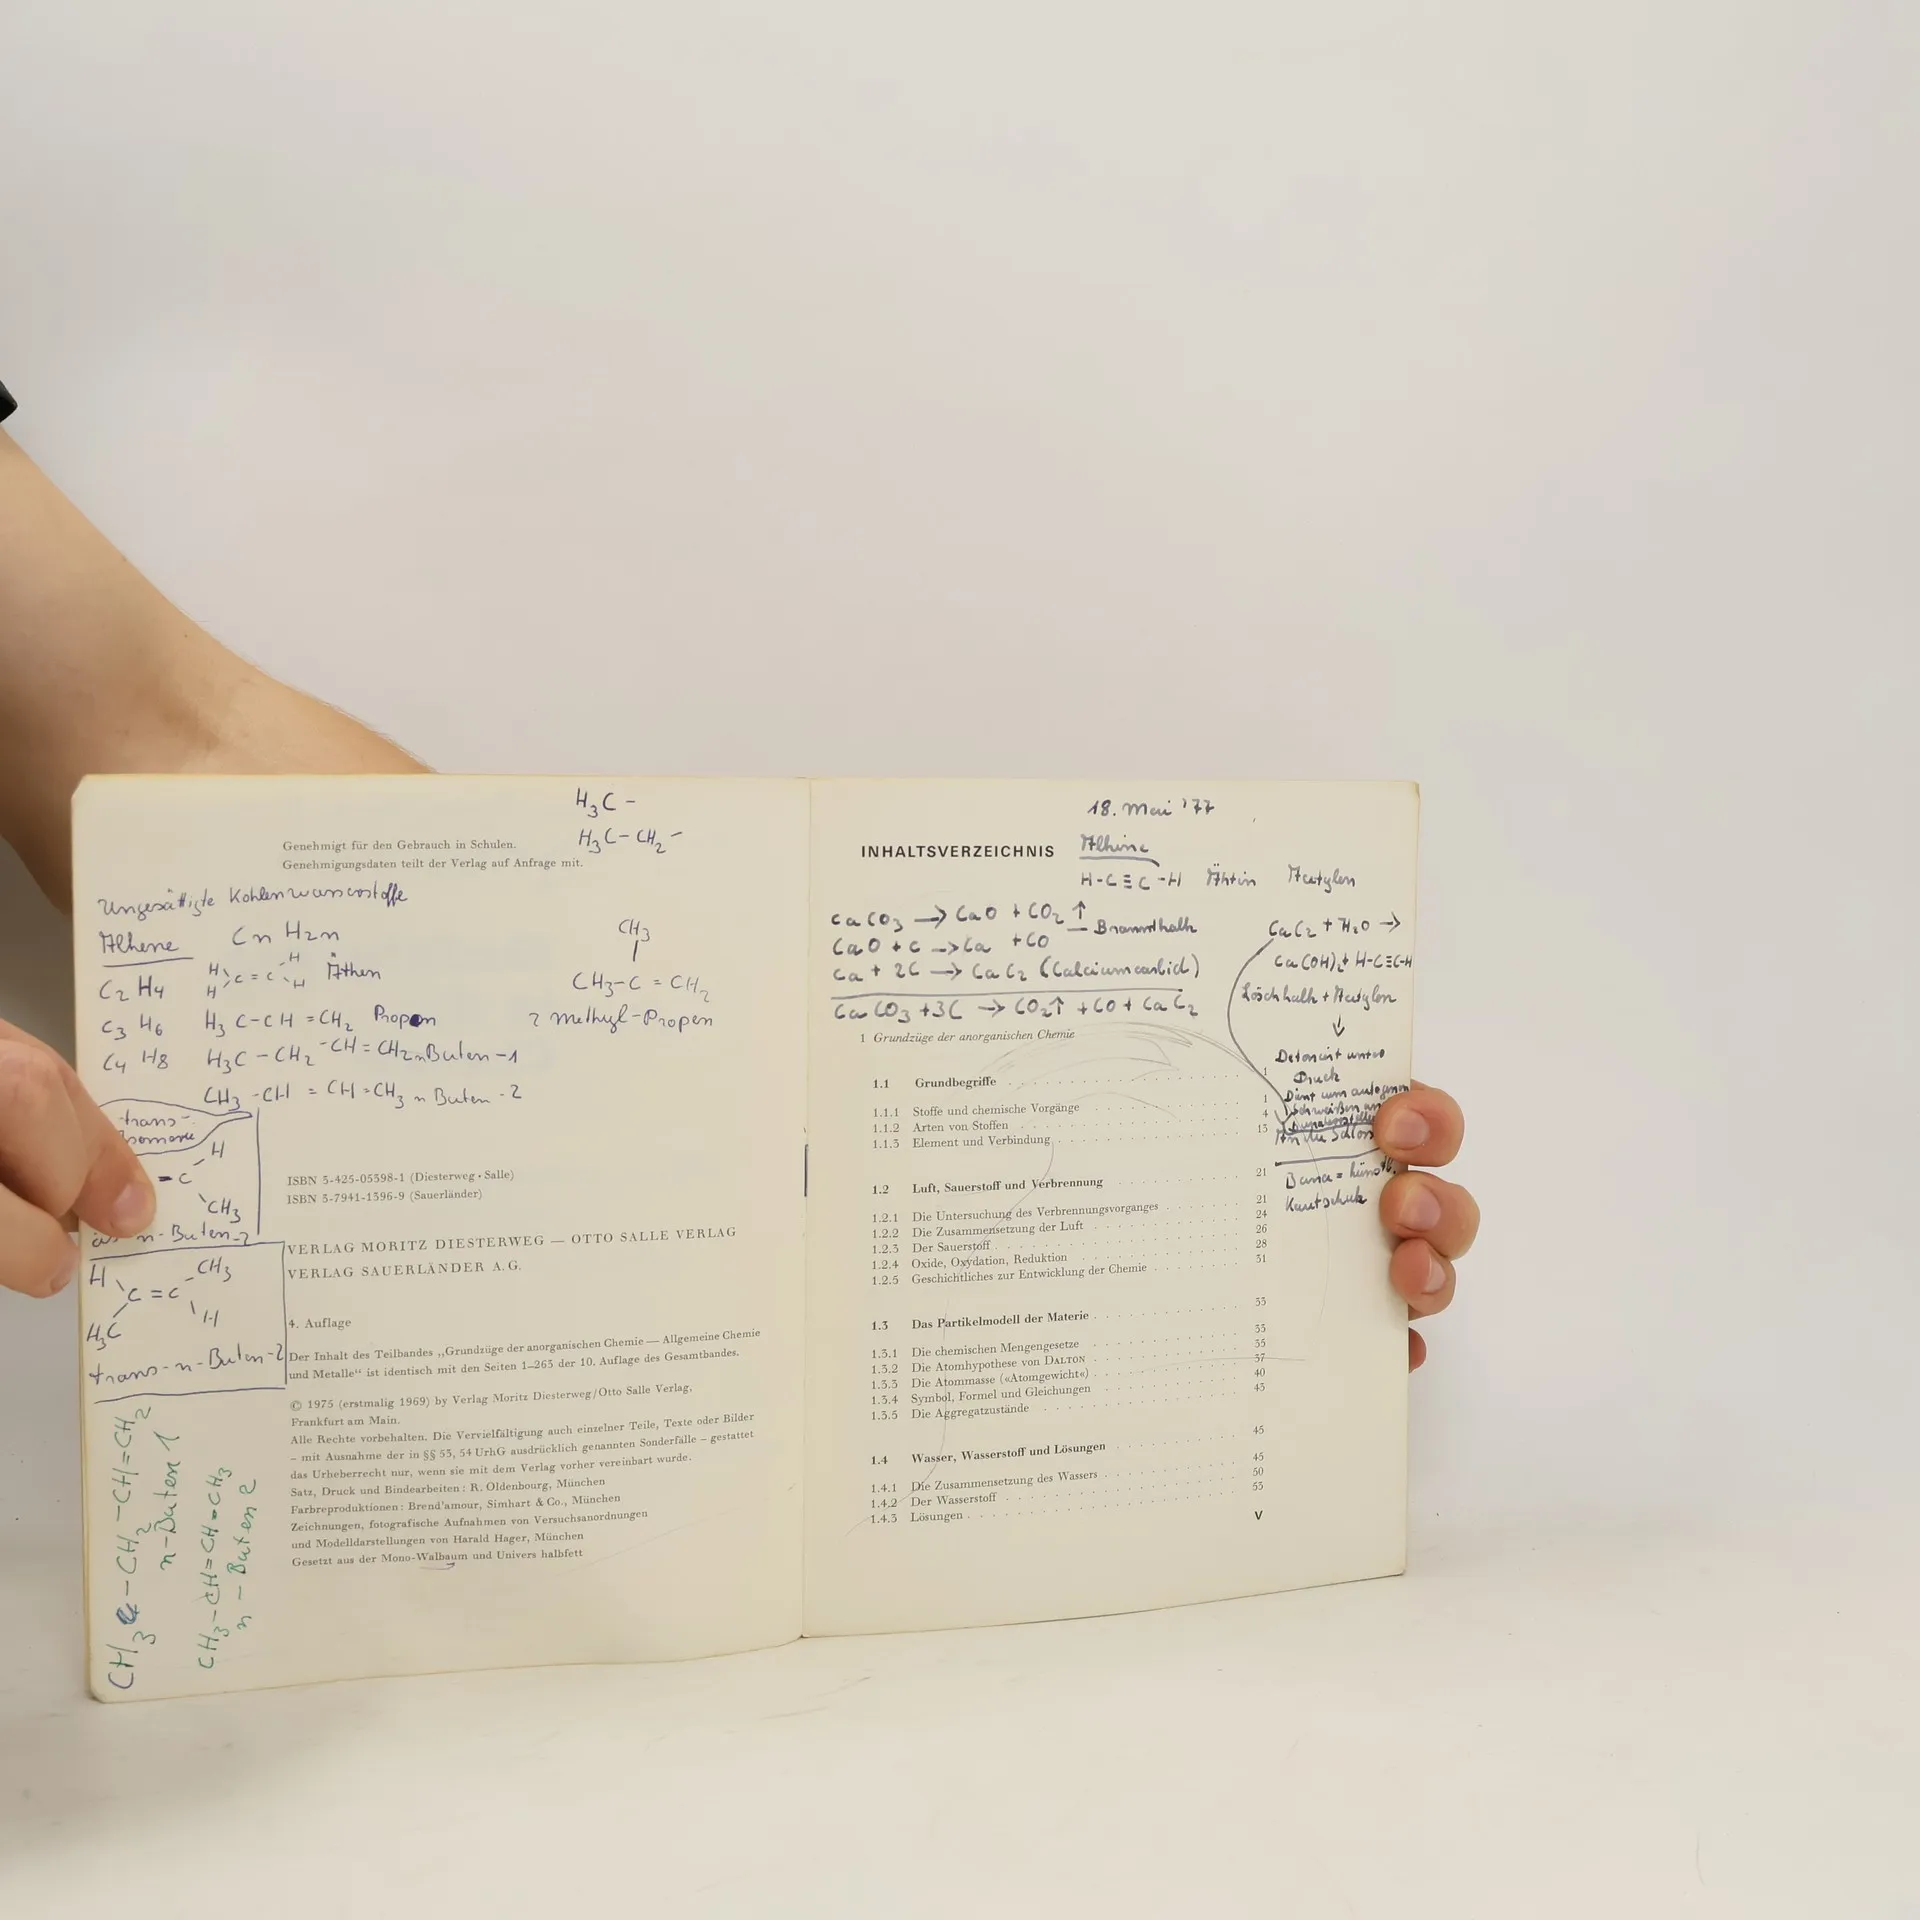 H3C -
H3C - CH2 -
Genehmigt für den Gebrauch in Schulen.
Genehmigungsdaten teilt der Verlag auf Anfrage mit.
Ungesättigte Kohlenwasserstoffe
Alkene CnH2n
C2H4 H H C = C H H Äthen
C3H6 H3C-CH=CH2 Propen
C4H8 H3C-CH2-CH=CH2 n Buten-1
CH3-CH=CH=CH3 n Buten-2
CH3
CH3-C=CH2
2 Methyl-Propen
trans-
H
=C
CH3
n-Buten-2
H CH3
C=C
H3C H
trans-n-Buten-2
CH3-CH2-CH=CH2
n-Buten 1
CH3-CH=CH=CH3
n-Buten 2
ISBN 3-425-05398-1 (Diesterweg · Salle)
ISBN 3-7941-1396-9 (Sauerländer)
VERLAG MORITZ DIESTERWEG — OTTO SALLE VERLAG
VERLAG SAUERLÄNDER A.G.
4. Auflage
Der Inhalt des Teilbandes „Grundzüge der anorganischen Chemie — Allgemeine Chemie
und Metalle“ ist identisch mit den Seiten 1–263 der 10. Auflage des Gesamtbandes.
© 1975 (erstmalig 1969) by Verlag Moritz Diesterweg/Otto Salle Verlag,
Frankfurt am Main.
Alle Rechte vorbehalten. Die Vervielfältigung auch einzelner Teile, Texte oder Bilder
– mit Ausnahme der in §§ 53, 54 UrhG ausdrücklich genannten Sonderfälle – gestattet
das Urheberrecht nur, wenn sie mit dem Verlag vorher vereinbart wurde.
Satz, Druck und Bindearbeiten: R. Oldenbourg, München
Farbreproduktionen: Brend'amour, Simhart & Co., München
Zeichnungen, fotografische Aufnahmen von Versuchsanordnungen
und Modelldarstellungen von Harald Hager, München
Gesetzt aus der Mono-Walbaum und Univers halbfett
18. Mai '77
INHALTSVERZEICHNIS
Alkine
H-C≡C-H Äthin Acetylen
CaCO3 → CaO + CO2 ↑
— Branntkalk
CaO + C → Ca + CO
Ca + 2C → CaC2 (Calciumcarbid)
CaCO3 + 3C → CO2↑ + CO + CaC2
CaC2 + H2O →
Ca(OH)2 + H-C≡C-H
Löschkalk + Acetylen
↓
Detoniert unter
Druck
Dient zum autogenen
Schweißen
Buna = künstl.
Kautschuk
1 Grundzüge der anorganischen Chemie 1
1.1 Grundbegriffe 1
1.1.1 Stoffe und chemische Vorgänge 1
1.1.2 Arten von Stoffen 4
1.1.3 Element und Verbindung 13
1.2 Luft, Sauerstoff und Verbrennung 21
1.2.1 Die Untersuchung des Verbrennungsvorganges 21
1.2.2 Die Zusammensetzung der Luft 24
1.2.3 Der Sauerstoff 26
1.2.4 Oxide, Oxydation, Reduktion 28
1.2.5 Geschichtliches zur Entwicklung der Chemie 31
1.3 Das Partikelmodell der Materie 33
1.3.1 Die chemischen Mengengesetze 33
1.3.2 Die Atomhypothese von DALTON 35
1.3.3 Die Atommasse («Atomgewicht«) 37
1.3.4 Symbol, Formel und Gleichungen 40
1.3.5 Die Aggregatzustände 43
1.4 Wasser, Wasserstoff und Lösungen 45
1.4.1 Die Zusammensetzung des Wassers 45
1.4.2 Der Wasserstoff 50
1.4.3 Lösungen 53
V